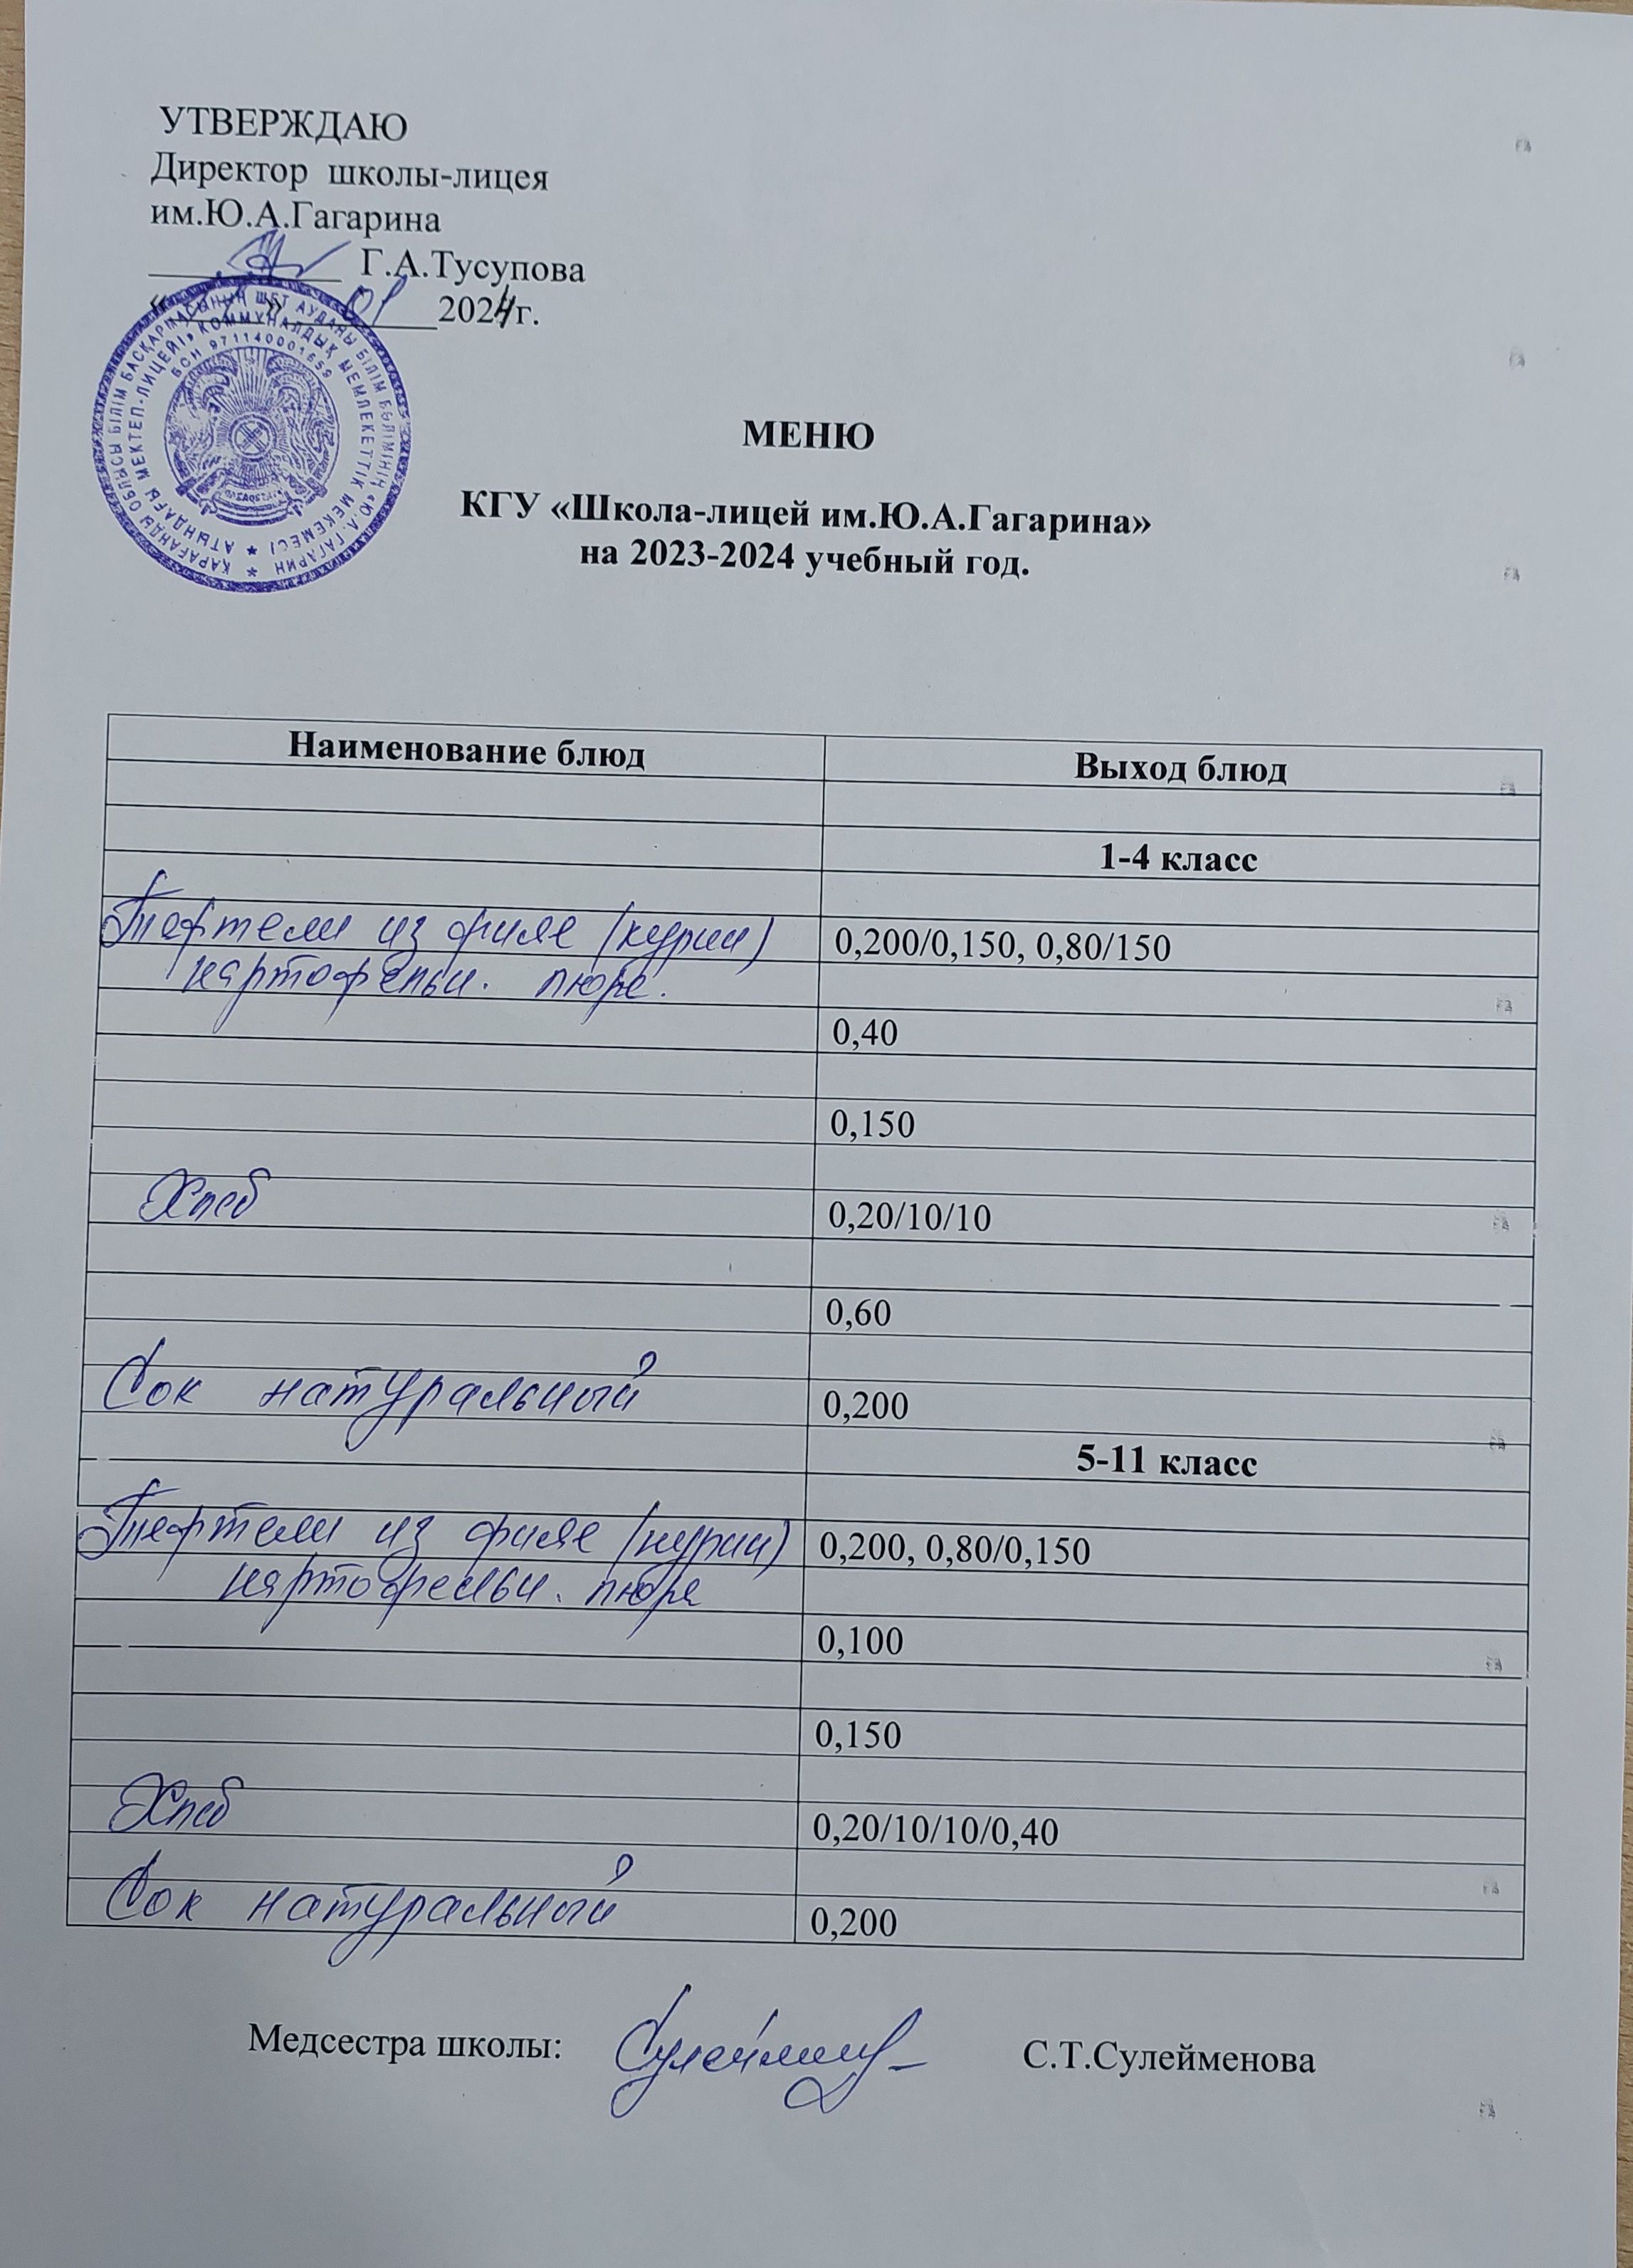 УТВЕРЖДАЮ
Директор школы-лицея
им.Ю.А.Гагарина
Г.А.Тусупова
« » 01 2024г.
ҚАРАҒАНДЫ ОБЛЫСЫ БІЛІМ БАСҚАРМАСЫНЫҢ ШЕТ АУДАНЫ БІЛІМ БӨЛІМІНІҢ «Ю.А.ГАГАРИН
АТЫНДАҒЫ МЕКТЕП-ЛИЦЕЙІ» КОММУНАЛДЫҚ МЕМЛЕКЕТТІК МЕКЕМЕСІ
БСН 971140001659
МЕНЮ
КГУ «Школа-лицей им.Ю.А.Гагарина»
на 2023-2024 учебный год.
Наименование блюд Выход блюд
1-4 класс
Тефтели из филе (курии) 0,200/0,150, 0,80/150
картофельн. пюре.
0,40
0,150
Хлеб 0,20/10/10
0,60
Сок натуральный 0,200
5-11 класс
Тефтели из филе (курии) 0,200, 0,80/0,150
картофельн. пюре
0,100
0,150
Хлеб 0,20/10/10/0,40
Сок натуральный 0,200
Медсестра школы: С.Т.Сулейменова